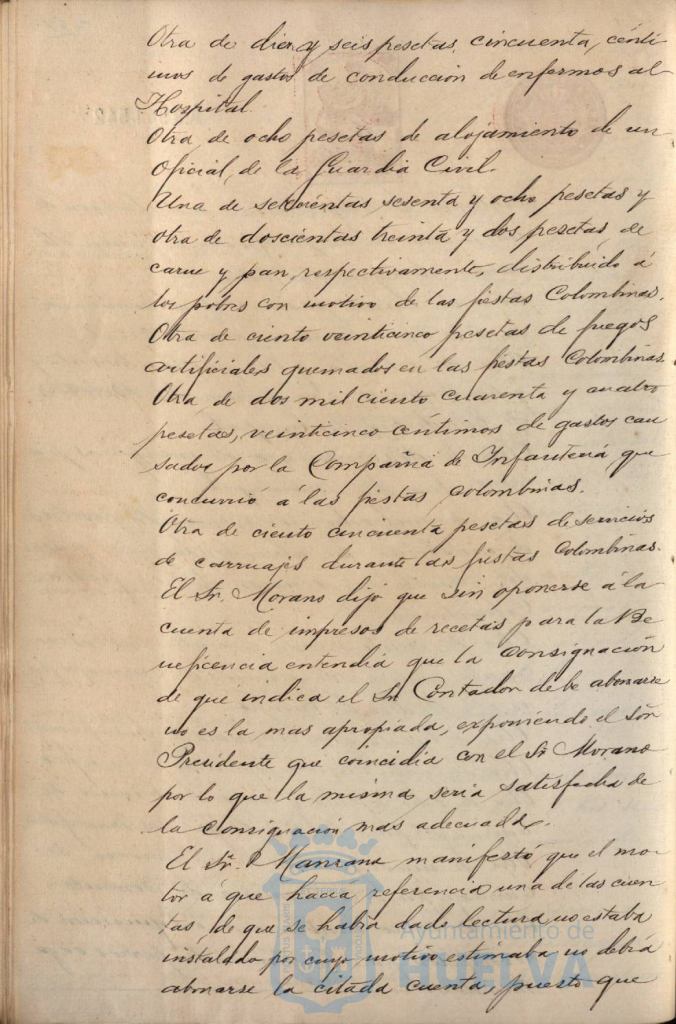 Otra de diez y seis pesetas, cincuenta, cénti
mos de gastos de conducción de enfermos al
Hospital.
Otra de ocho pesetas de alojamiento de un
Oficial, de la Guardia Civil.
Una de setecientas sesenta y ocho pesetas y
otra de doscientas treinta y dos pesetas, de
carne y pan, respectivamente, distribuído á
los pobres con motivo de las fiestas Colombinas.
Otra de ciento veinticinco pesetas de fuegos
artificiales quemados en las fiestas Colombinas.
Otra de dos mil ciento cuarenta y cuatro
pesetas, veinticinco céntimos de gastos cau
sados por la Compañia de Infantería que
concurrió á las fiestas Colombinas.
Otra de ciento cincuenta pesetas de servicios
de carruajes durante las fiestas Colombinas.
El Sr. Morano dijo que sin oponerse á la
cuenta de impresos de recetas para la Be
neficencia entendia que la consignación
de que indica el Sr. Contador debe abonarse
no es la mas apropiada, exponiendo el Sór
Presidente que coincidia con el Sr. Morano
por lo que la misma seria satisfecha de
la consignación mas adecuada.
El Sr. Manzano manifestó que el mo-
tor á que hacia referencia una de las cuen
tas de que se habia dado lectura no estaba
instalado por cuyo motivo estimaba no debia
abonarse la citada cuenta, puesto que
Ayuntamiento de
HUELVA